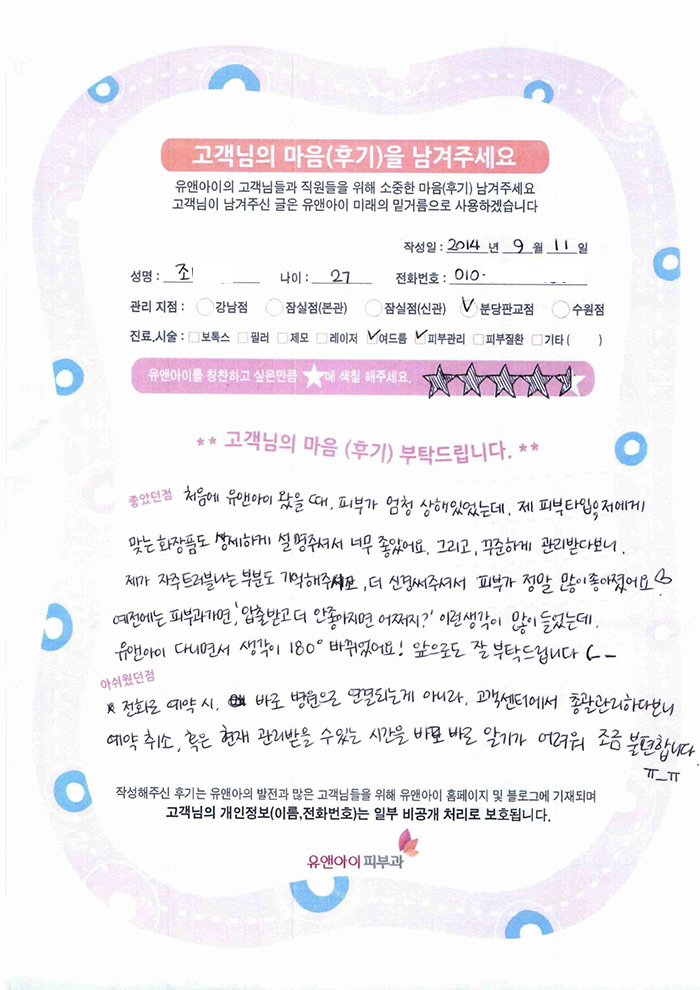 고객님의 마음(후기)을 남겨주세요
유앤아이의 고객님들과 직원들을 위해 소중한 마음(후기) 남겨주세요
고객님이 남겨주신 글은 유앤아이 미래의 밑거름으로 사용하겠습니다
작성일 : 2014 년 9 월 11 일
성명 : 조 나이 : 27 전화번호 : 010·
관리 지점 : 강남점 잠실점(본관) 잠실점(신관) 분당판교점 수원점
진료.시술 : 보톡스 필러 제모 레이저 여드름 피부관리 피부질환 기타 ( )
유앤아이를 칭찬하고 싶은만큼 ★에 색칠 해주세요.
** 고객님의 마음 (후기) 부탁드립니다. **
좋았던점 처음에 유앤아이 왔을 때, 피부가 엄청 상해있었는데, 제 피부타입, 저에게
맞는 화장품도 상세하게 설명주셔서 너무 좋았어요. 그리고, 꾸준하게 관리받다보니,
제가 자주트러블나는 부분도 기억해주시고, 더 신경써주셔서 피부가 정말 많이좋아졌어요♡
예전에는 피부과가면, '압출받고 더 안좋아지면 어쩌지?' 이런생각이 많이 들었는데,
유앤아이 다니면서 생각이 180° 바뀌었어요! 앞으로도 잘 부탁드립니다 (_ _
아쉬웠던점
* 전화로 예약 시, 바로 병원으로 연결되는게 아니라, 고객센터에서 총괄관리하다보니
예약 취소, 혹은 현재 관리받을 수있는 시간을 바로 바로 알기가 어려워 조금 불편합니다.
ㅠ_ㅠ
작성해주신 후기는 유앤아의 발전과 많은 고객님들을 위해 유앤아이 홈페이지 및 블로그에 기재되며
고객님의 개인정보(이름,전화번호)는 일부 비공개 처리로 보호됩니다.
유앤아이피부과